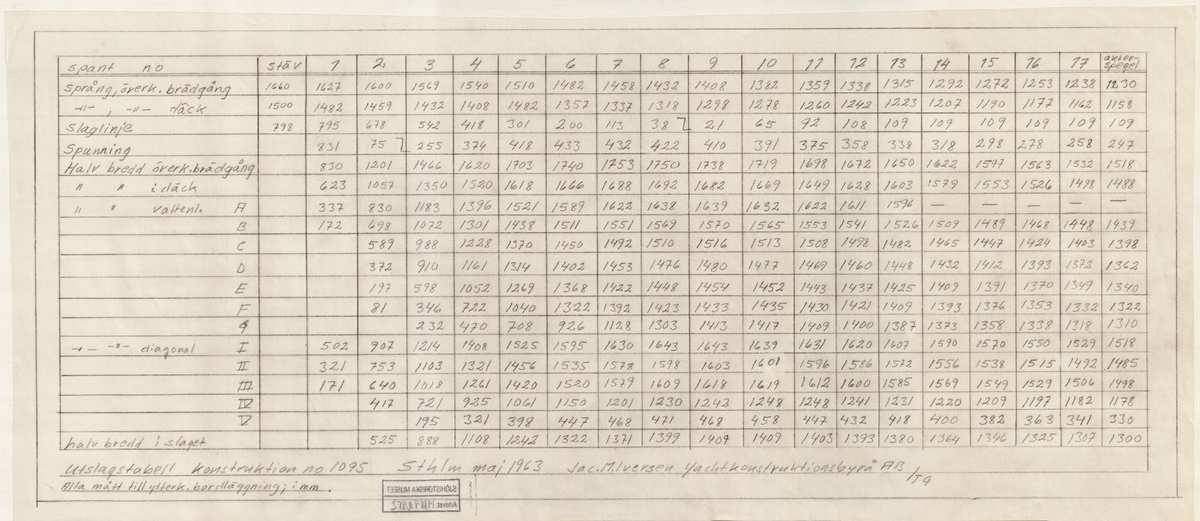 spant no stäv 1 2 3 4 5 6 7 8 9 10 11 12 13 14 15 16 17 akter-spegel
Språng, överk. brädgång 1660 1627 1600 1569 1540 1510 1482 1458 1432 1408 1382 1359 1338 1315 1292 1272 1253 1238 1230
-"- , -"- däck 1500 1482 1459 1432 1408 1482 1357 1337 1318 1298 1278 1260 1242 1223 1207 1190 1177 1162 1158
Slaglinje 798 795 678 542 418 301 200 113 38 21 65 92 108 109 109 109 109 109 109
Spunning 831 75 255 374 418 433 432 422 410 391 375 358 338 318 298 278 258 247
Halv bredd överk. brädgång 830 1201 1466 1620 1703 1740 1753 1750 1738 1719 1698 1672 1650 1622 1597 1563 1532 1518
" " i däck 623 1057 1350 1520 1618 1666 1688 1692 1682 1669 1649 1628 1603 1579 1553 1526 1498 1488
" " vattenl. A 337 830 1183 1396 1521 1589 1622 1638 1639 1632 1622 1611 1596 — — — — —
B 172 698 1072 1301 1438 1511 1551 1569 1570 1565 1553 1541 1526 1509 1489 1468 1448 1439
C 589 988 1228 1370 1450 1492 1510 1516 1513 1508 1498 1482 1465 1447 1424 1403 1398
D 372 910 1161 1314 1402 1453 1476 1480 1477 1469 1460 1448 1432 1412 1393 1372 1362
E 197 598 1052 1269 1368 1422 1448 1454 1452 1443 1437 1425 1409 1391 1370 1349 1340
F 81 346 722 1040 1322 1392 1423 1433 1435 1430 1421 1409 1393 1376 1353 1332 1322
G 232 470 708 926 1128 1303 1413 1417 1409 1400 1387 1373 1358 1338 1318 1310
-"- -"- diagonal I 502 907 1214 1408 1525 1595 1630 1643 1643 1639 1631 1620 1607 1590 1570 1550 1529 1518
II 321 753 1103 1321 1456 1535 1578 1598 1603 1601 1596 1586 1572 1556 1538 1515 1492 1485
III 171 640 1018 1261 1420 1520 1579 1609 1618 1619 1612 1600 1585 1569 1549 1529 1506 1498
IV 417 721 925 1061 1150 1201 1230 1242 1248 1248 1241 1231 1220 1209 1197 1182 1178
V 195 321 398 447 468 471 468 458 447 432 418 400 382 363 341 330
halv bredd i slaget 525 888 1108 1242 1322 1371 1399 1407 1409 1403 1393 1380 1364 1346 1325 1307 1300
Utslagstabell konstruktion no 1095 Sthlm maj 1963 Jac. M. Iversen Yachtkonstruktionsbyrå AB /TG
Alla mått till ytterk. bordläggning; i mm.
SJÖHISTORISKA MUSEET